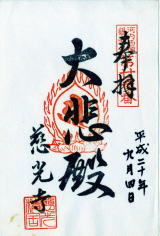 奉拝
平成二十年
九月四日
大悲殿
慈光寺